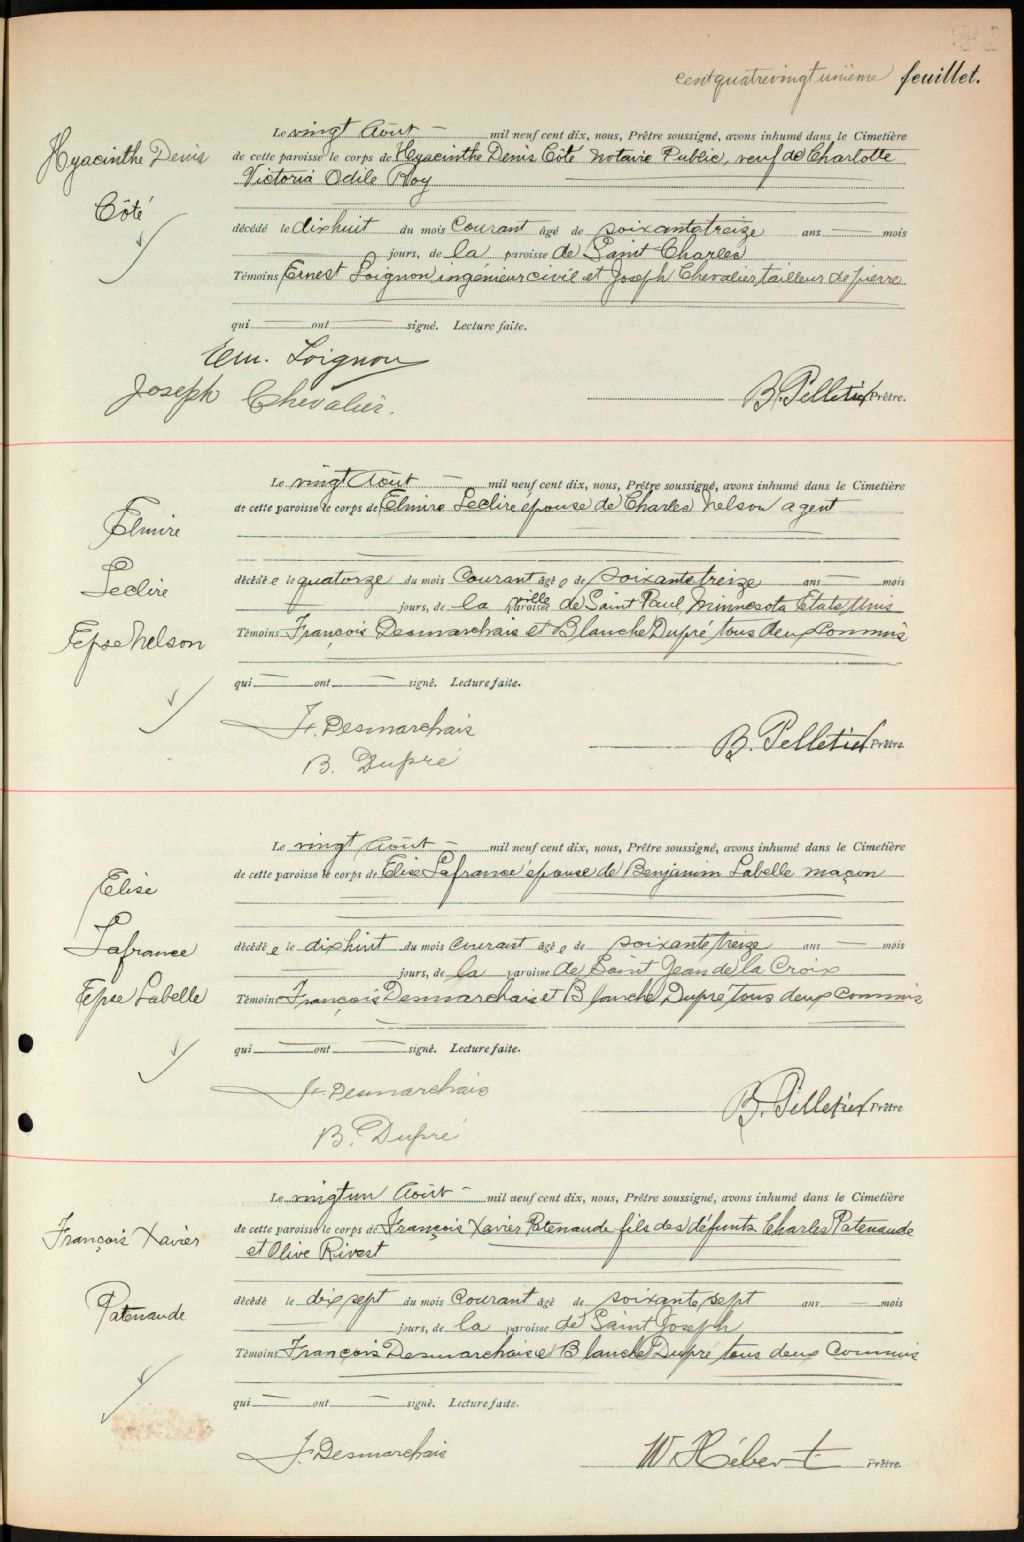 centquatrevingt unième feuillet.
Hyacinthe Denis
Côté
Le vingt Août — mil neuf cent dix, nous, Prêtre soussigné, avons inhumé dans le Cimetière
de cette paroisse le corps de Hyacinthe Denis Côté Notaire Public, veuf de Charlotte
Victoria Odile Roy
décédé le dix huit du mois Courant âgé de soixante treize ans — mois
jours, de la paroisse de Saint Charles
Témoins Ernest Loignon ingénieur civil et Joseph Chevalier, tailleur de pierre
qui — ont — signé. Lecture faite.
Em. Loignon
Joseph Chevalier.
B. Pelletier Prêtre.
Elmire
Leclire
Epse Nelson
Le vingt Août — mil neuf cent dix, nous, Prêtre soussigné, avons inhumé dans le Cimetière
de cette paroisse le corps de Elmire Leclire épouse de Charles Nelson agent
décédé e le quatorze du mois Courant âgé e de soixante treize ans — mois
jours, de la paroisse ville de Saint Paul Minnesota Etats Unis
Témoins François Desmarchais et Blanche Dupré tous deux Commis
qui — ont — signé. Lecture faite.
F. Desmarchais
B. Dupré
B. Pelletier Prêtre
Elise
Lafrance
Epse Labelle
Le vingt Août — mil neuf cent dix, nous, Prêtre soussigné, avons inhumé dans le Cimetière
de cette paroisse le corps de Elise Lafrance épouse de Benjamin Labelle maçon
décédé e le dix huit du mois Courant âgé e de soixante treize ans — mois
jours, de la paroisse de Saint Jean de la Croix
Témoins François Desmarchais et Blanche Dupré tous deux Commis
qui — ont — signé. Lecture faite.
F. Desmarchais
B. Dupré
B. Pelletier Prêtre
François Xavier
Patenaude
Le vingt un Août — mil neuf cent dix, nous, Prêtre soussigné, avons inhumé dans le Cimetière
de cette paroisse le corps de François Xavier Patenaude fils des défunts Charles Patenaude
et Olive Rivest
décédé le dix sept du mois Courant âgé de soixante sept ans — mois
jours, de la paroisse de Saint Joseph
Témoins François Desmarchais et Blanche Dupré tous deux Commis
qui — ont — signé. Lecture faite.
F. Desmarchais
W Hébert Prêtre.